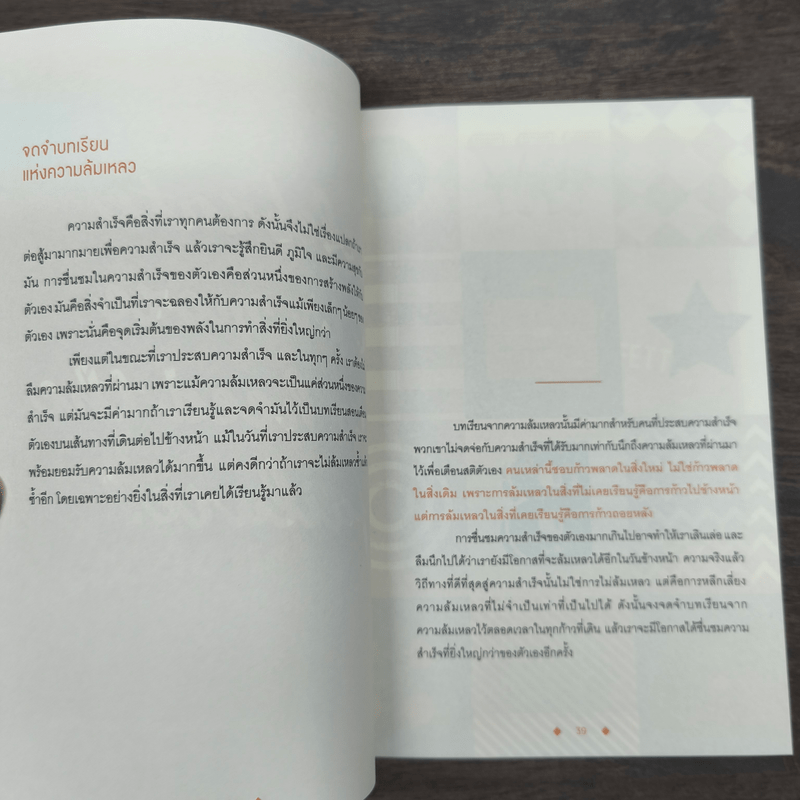 จดจำบทเรียน
แห่งความล้มเหลว
ความสำเร็จคือสิ่งที่เราทุกคนต้องการ ดังนั้นจึงไม่ใช่เรื่องแปลก
ต่อสู้มามากมายเพื่อความสำเร็จ แล้วเราจะรู้สึกยินดี ภูมิใจ และมีความสุข
มัน การชื่นชมในความสำเร็จของตัวเองคือส่วนหนึ่งของการสร้างพลังให้
ตัวเอง มันคือสิ่งจำเป็นที่เราจะฉลองให้กับความสำเร็จแม้เพียงเล็กๆ น้อยๆ ของ
ตัวเอง เพราะนั่นคือจุดเริ่มต้นของพลังในการทำสิ่งที่ยิ่งใหญ่กว่า
เพียงแต่ในขณะที่เราประสบความสำเร็จ และในทุกๆ ครั้ง เรา
ลืมความล้มเหลวที่ผ่านมา เพราะแม้ความล้มเหลวจะเป็นแค่ส่วนหนึ่งของความ
สำเร็จ แต่มันจะมีค่ามากถ้าเราเรียนรู้และจดจำมันไว้เป็นบทเรียนสอน
ตัวเองบนเส้นทางที่เดินต่อไปข้างหน้า แม้ในวันที่เราประสบความสำเร็จ เรา
พร้อมยอมรับความล้มเหลวได้มากขึ้น แต่คงดีกว่าถ้าเราจะไม่ล้มเหลวซ้ำ
ซ้ำอีก โดยเฉพาะอย่างยิ่งในสิ่งที่เราเคยได้เรียนรู้มาแล้ว
บทเรียนจากความล้มเหลวนั้นมีค่ามากสำหรับคนที่ประสบความสำเร็จ
พวกเขาไม่จดจ่อกับความสำเร็จที่ได้รับมากเท่ากับนึกถึงความล้มเหลวที่ผ่านมา
ไว้เพื่อเตือนสติตัวเอง คนเหล่านี้ชอบก้าวพลาดในสิ่งใหม่ ไม่ใช่ก้าวพลาด
ในสิ่งเดิม เพราะการล้มเหลวในสิ่งที่ไม่เคยเรียนรู้คือการก้าวไปข้างหน้า
แต่การล้มเหลวในสิ่งที่เคยเรียนรู้คือการก้าวถอยหลัง
การชื่นชมความสำเร็จของตัวเองมากเกินไปอาจทำให้เราเลินเล่อ และ
ลืมนึกไปได้ว่าเรายังมีโอกาสที่จะล้มเหลวได้อีกในวันข้างหน้า ความจริงแล้ว
วิถีทางที่ดีที่สุดสู่ความสำเร็จนั้นไม่ใช่การไม่ล้มเหลว แต่คือการหลีกเลี่ยง
ความล้มเหลวที่ไม่จำเป็นเท่าที่เป็นไปได้ ดังนั้นจงจดจำบทเรียนจาก
ความล้มเหลวไว้ตลอดเวลาในทุกก้าวที่เดิน แล้วเราจะมีโอกาสได้ชื่นชมความ
สำเร็จที่ยิ่งใหญ่กว่าของตัวเองอีกครั้ง
39